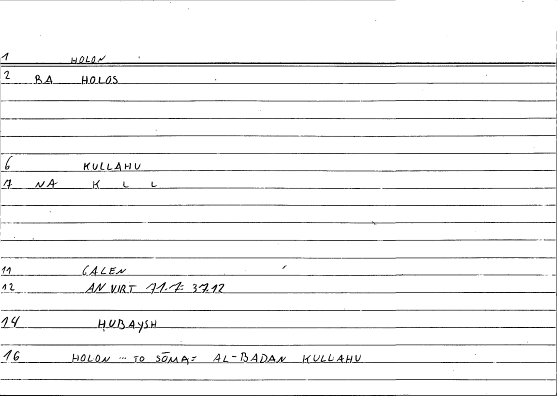 1 HOLON
2 BA HOLOS
6 KULLAHU
7 NA K L L
11 GALEN
12 AN VIRT 71.7: 37.12
14 ḤUBAYSH
16 HOLON ... TO SŌMA: AL-BADAN KULLAHU